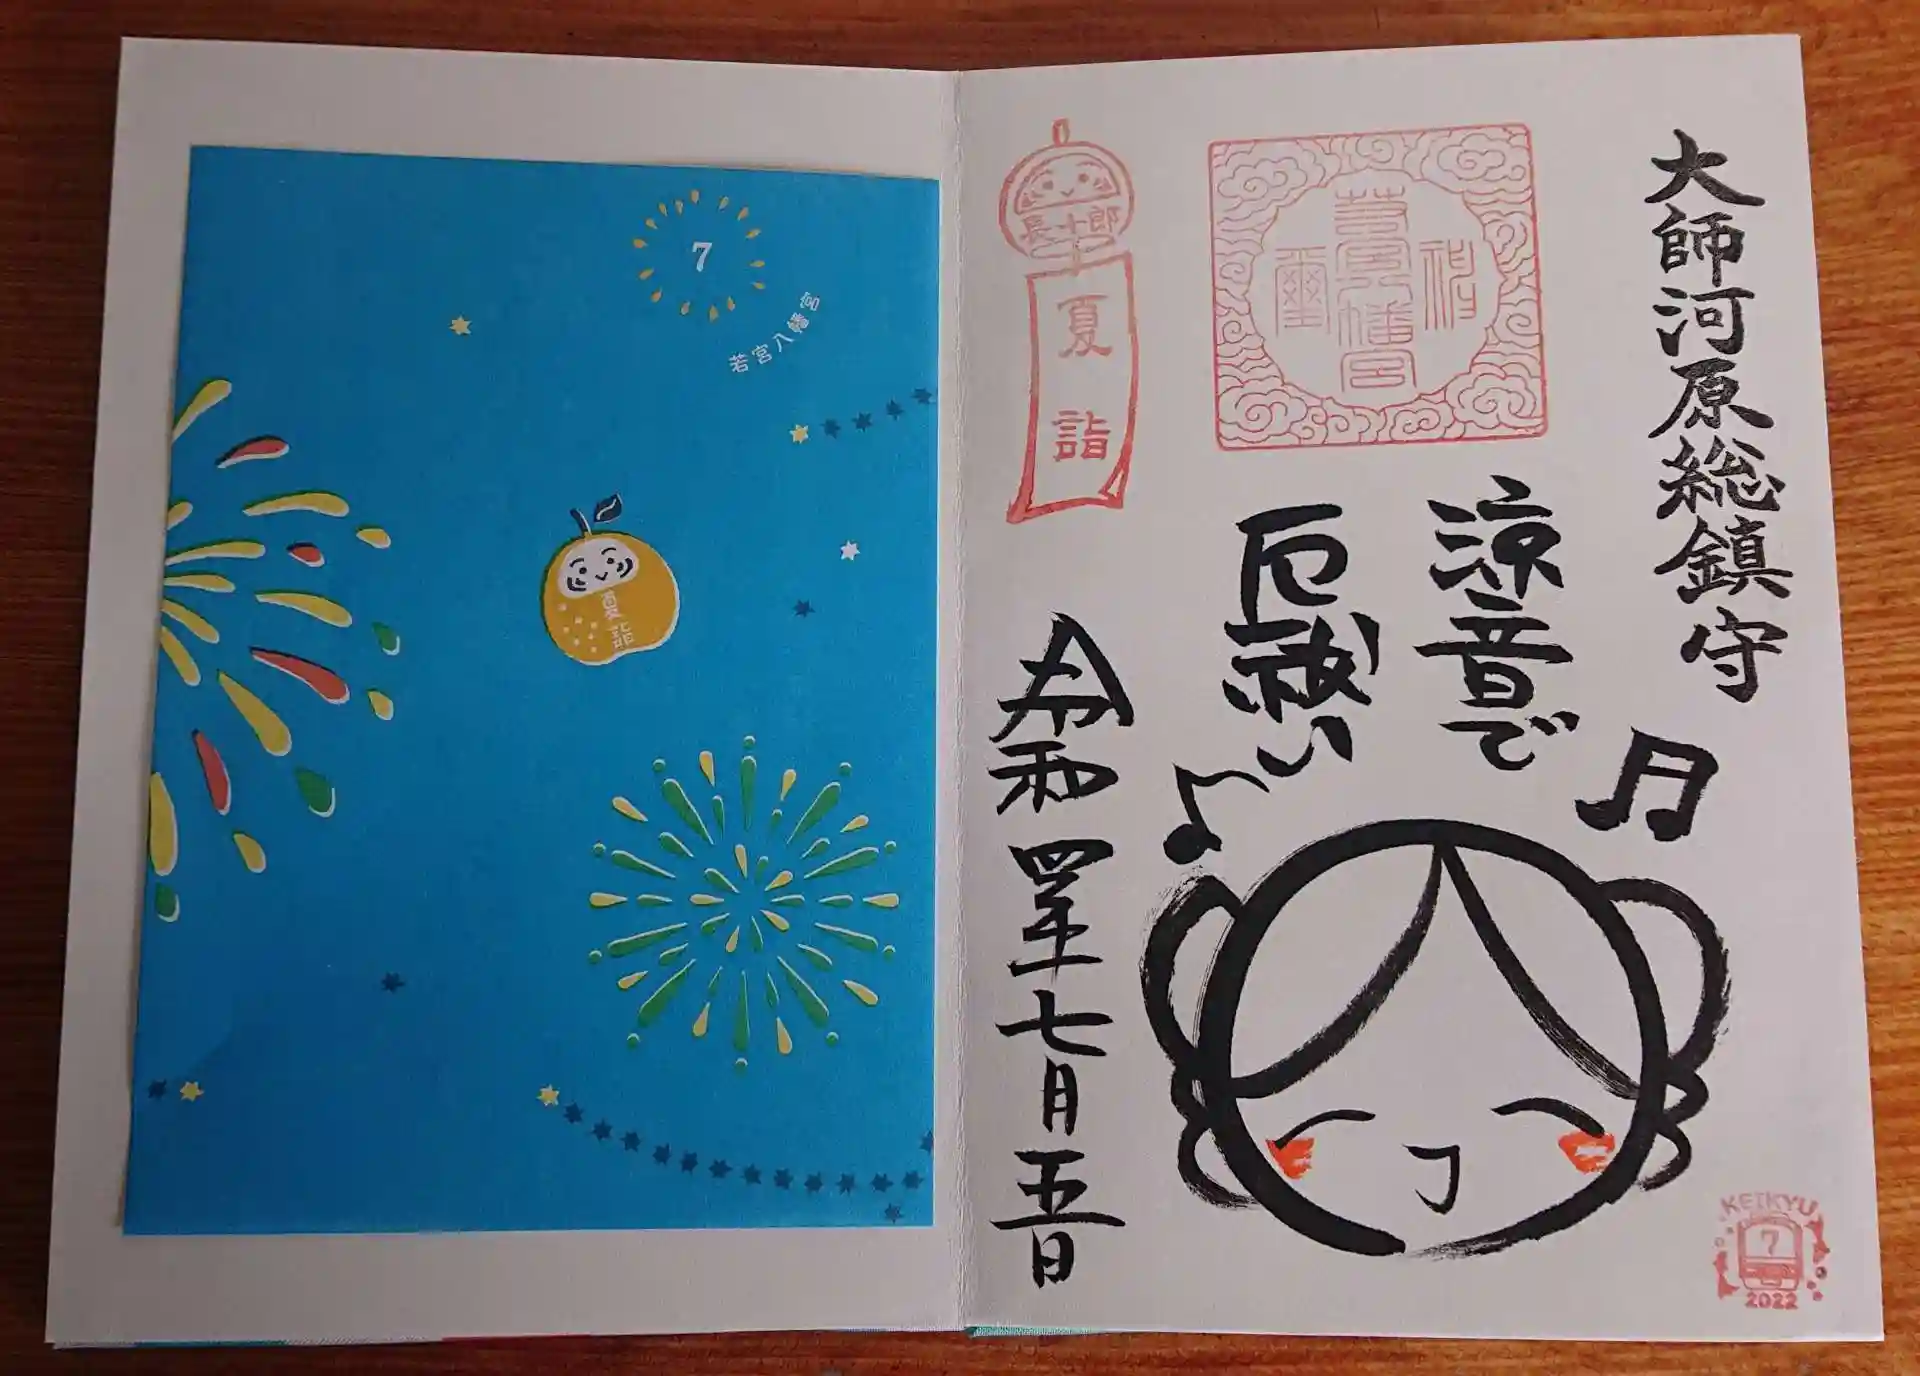 大師河原総鎮守
若宮八幡宮
神璽
涼音で
厄祓い
長十郎
夏詣
令和四年七月五日
KEIKYU
7
2022
7
若宮八幡宮
夏詣